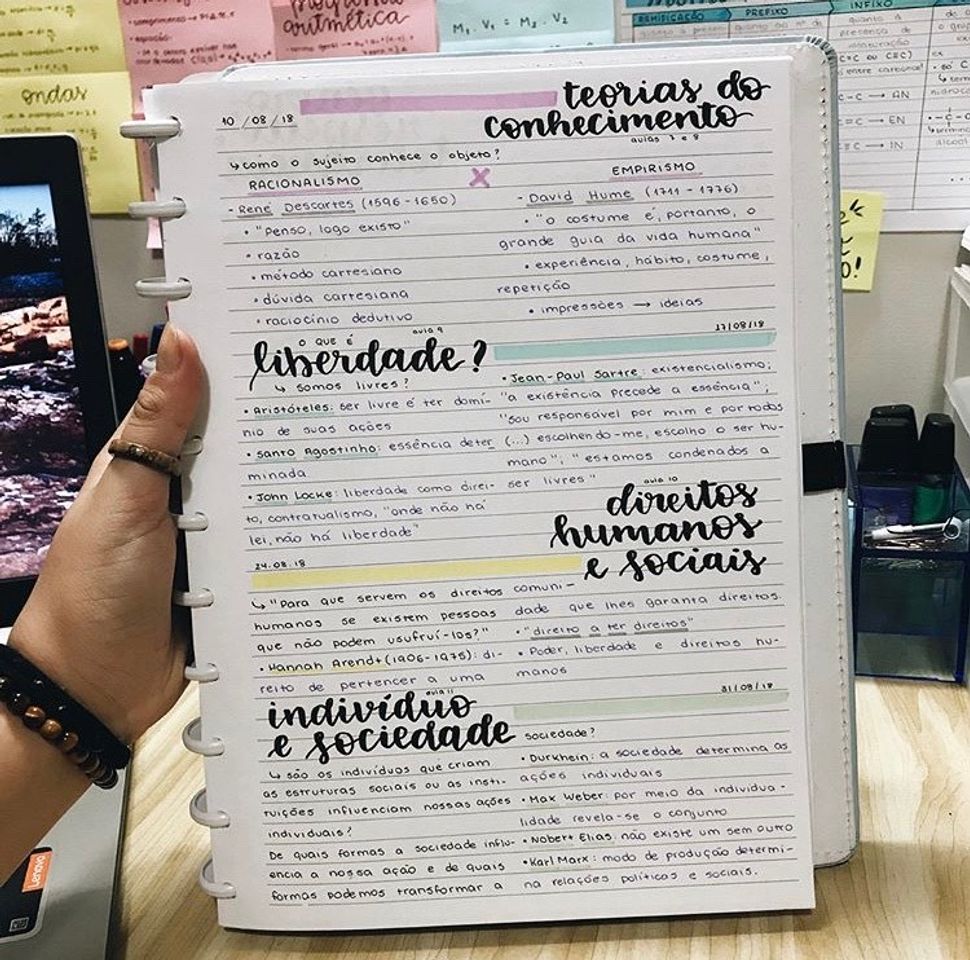 progressão
aritmética
ondas
M₁ . V₁ = M₂ . V₂
RAMIFICAÇÃO PREFIXO INFIXO
teorias do
conhecimento
aulas 7 e 8
10 / 08 / 18
↳ como o sujeito conhece o objeto?
RACIONALISMO X EMPIRISMO
- René Descartes (1596 - 1650)
• "penso, logo existo"
• razão
• método cartesiano
• dúvida cartesiana
• raciocínio dedutivo
- David Hume (1711 - 1776)
• "o costume é, portanto, o
grande guia da vida humana"
• experiência, hábito, costume,
repetição
• impressões → ideias
aula 9
o que é
liberdade?
17/08/18
↳ somos livres?
• Aristóteles: ser livre é ter domí-
nio de suas ações
• Santo Agostinho: essência deter
minada
• John Locke: liberdade como direi-
to, contratualismo, "onde não há
lei, não há liberdade"
• Jean-Paul Sartre: existencialismo;
"a existência precede a essência";
"sou responsável por mim e por todos
(...) escolhendo-me, escolho o ser hu-
mano"; "estamos condenados a
ser livres"
aula 10
direitos
humanos
e sociais
24.08.18
↳ "Para que servem os direitos
humanos se existem pessoas
que não podem usufruí-los?"
• Hannah Arendt (1906 - 1975): di-
reito de pertencer a uma
comuni-
dade que lhes garanta direitos.
• "direito a ter direitos"
• Poder, liberdade e direitos hu-
manos
aula 11
indivíduo
e sociedade
31/08/18
↳ são os indivíduos que criam
as estruturas sociais ou as insti-
tuições influenciam nossas ações
individuais?
De quais formas a sociedade influ-
encia a nossa ação e de quais
formas podemos transformar a
sociedade?
• Durkhein: a sociedade determina as
ações individuais
• Max Weber: por meio da individua-
lidade revela-se o conjunto
• Nobert Elias: não existe um sem outro
• Karl Marx: modo de produção determi-
na relações políticas e sociais.
Lenovo